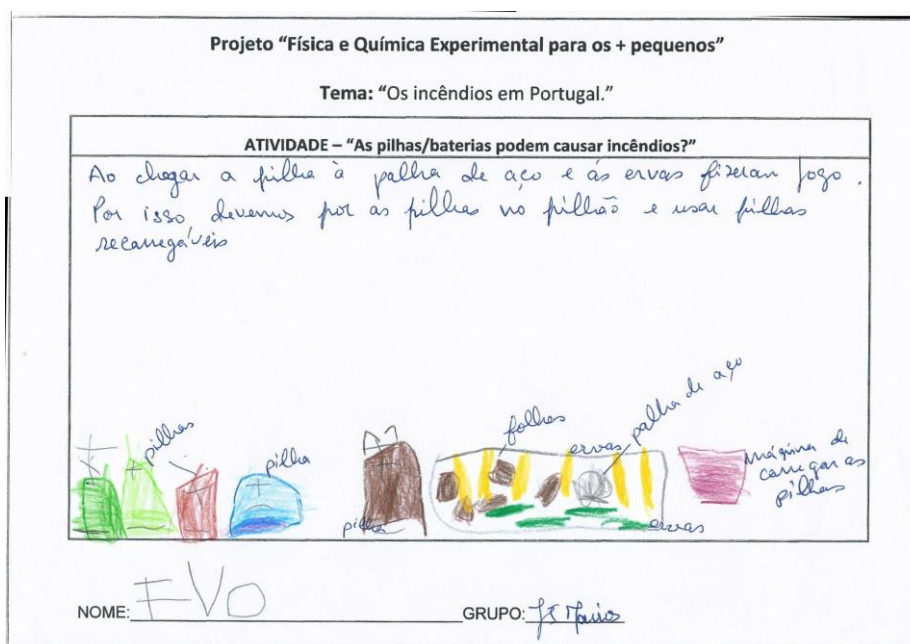 Projeto "Física e Química Experimental para os + pequenos"
Tema: "Os incêndios em Portugal."
ATIVIDADE – "As pilhas/baterias podem causar incêndios?"
Ao chegar a pilha à palha de aço e ás ervas fizeram fogo.
Por isso devemos por as pilhas no pilhão e usar pilhas
recarregáveis
pilhas
pilha
pilha
folhas
ervas
palha de aço
ervas
máquina de
carregar as
pilhas
NOME: IVO
GRUPO: JI